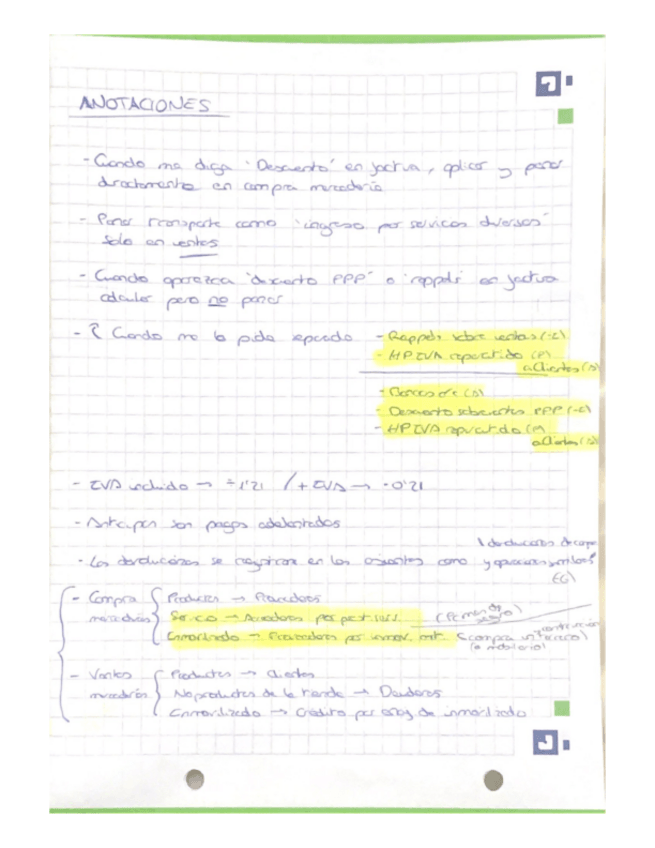 ANOTACIONES
- Cuando me diga "Descuento" en factura, aplicar y poner
directamente en compra mercadería
- Poner transporte como "ingreso por servicios diversos"
solo en ventas
- Cuando aparezca "descuento PPP" o "rappels" en factura
calcular pero no poner
- Cuando me lo pida
- Rappels sobre ventas (-I)
- HP IVA repercutido (P)
a Clientes (A)
- Bancos c/c (A)
- Descuento sobre ventas PPP (-I)
- HP IVA repercutido (P)
a Clientes (A)
- IVA incluido → ÷1'21 / + IVA → 0'21
- Anticipos son pagos adelantados
- Las devoluciones se registran en los asientos como
"devoluciones de compra
y operaciones similares"
- Compra mercaderías
Productos → Proveedores
Servicio → Acreedores por prest. serv.
Inmovilizado → Proveedores por inmov.
(compra
- Ventas mercaderías
Productos → Clientes
No productos de la tienda → Deudores
Inmovilizado → Crédito por enaj. de inmovilizado